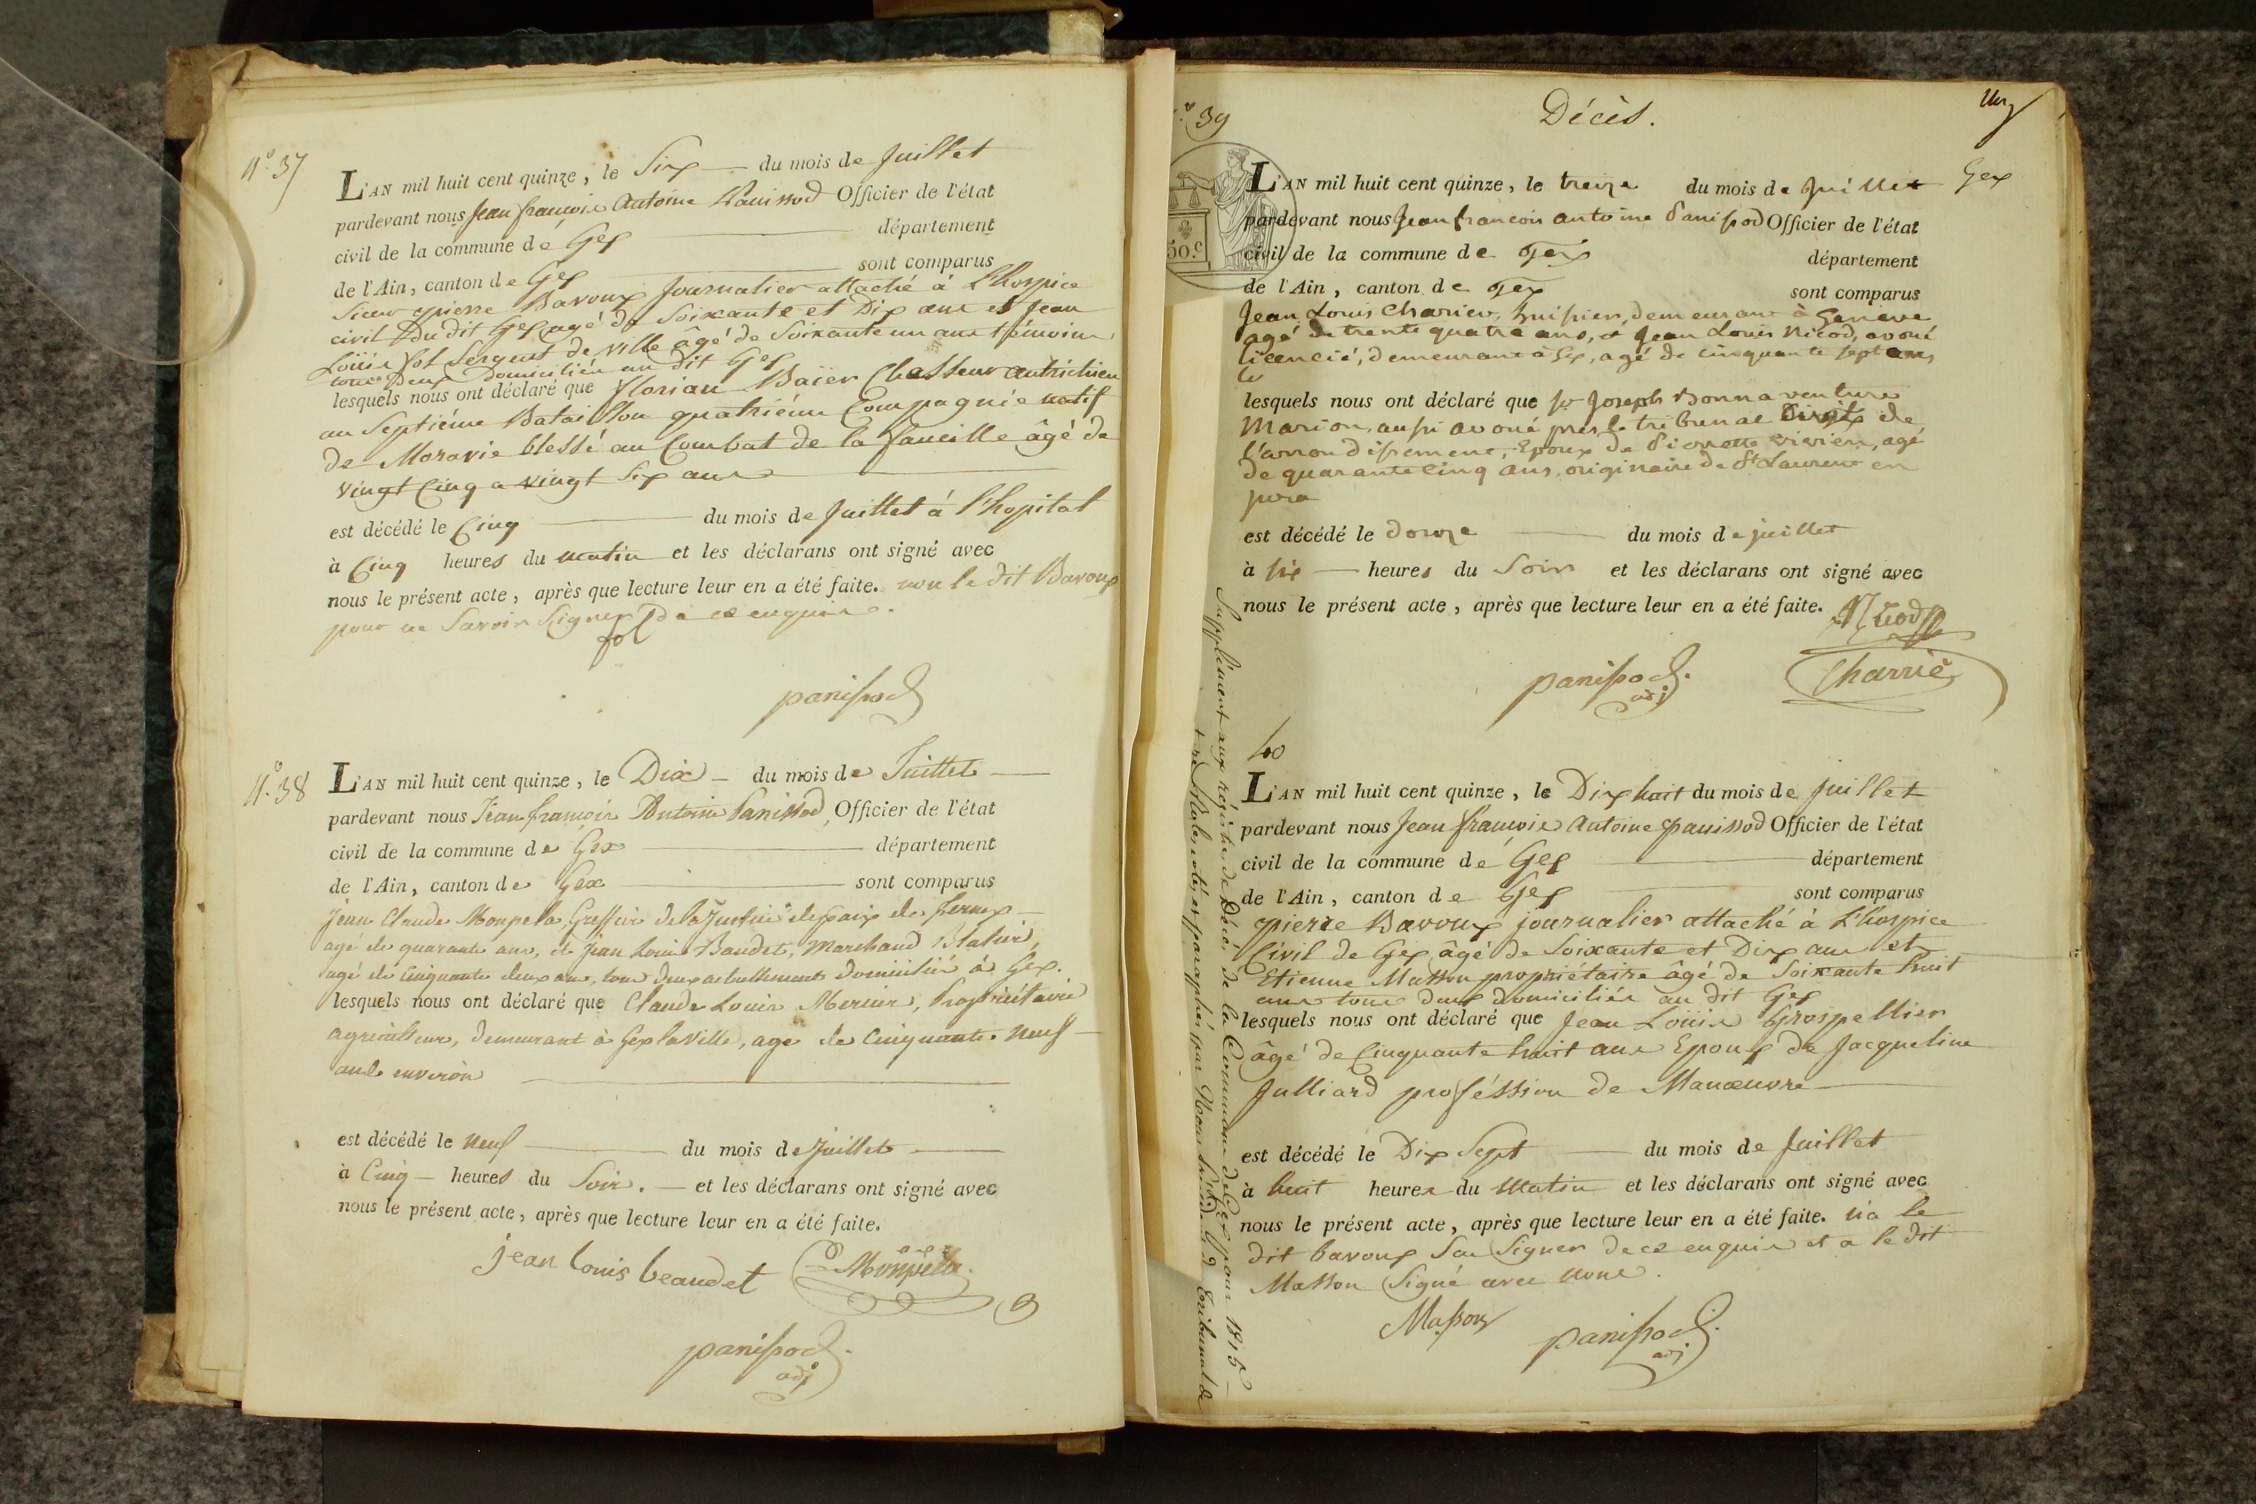 N.° 37
L'AN mil huit cent quinze, le Six du mois de Juillet
pardevant nous Jean françois Antoine Panissod Officier de l'état
civil de la commune de Gex département
de l'Ain, canton de Gex sont comparus
Sieur pierre Bavoux Journalier attaché à L'hospice
civil Du dit Gex agé de Soixante et Dix ans et Jean
Loüis fol Sergent de ville âgé de Soixante un ans témoins
tous Deux Domiciliés au dit Gex
lesquels nous ont déclaré que florian Baïer Chasseur autrichien
au Septiéme Bataillon quatriéme Compagnie natif
de Moravie blessé au Combat de la faucille âgé de
vingt Cinq a vingt Six ans
est décédé le Cinq du mois de Juillet à l'hopital
à Cinq heures du matin et les déclarans ont signé avec
nous le présent acte, après que lecture leur en a été faite. non le dit Bavoux
pour ne Savoir Signer De ce enquis.
fol
panissod
N.° 38
L'AN mil huit cent quinze, le Dix du mois de Juillet
pardevant nous Jean françois Antoine Panissod, Officier de l'état
civil de la commune de Gex département
de l'Ain, canton de Gex sont comparus
Jean Claude Monpela Greffier de la Justice de paix de ferney
agé de quarante ans, et Jean Louis Baudet, Marchand
agé de cinquante deux ans, tous deux actuellement domicilié à Gex.
lesquels nous ont déclaré que Claude Louis Mercier, Propriétaire
agriculteur, demeurant à Gex la ville, agé de Cinquante neuf
ans environ
est décédé le neuf du mois de Juillet
à Cinq heures du Soir. et les déclarans ont signé avec
nous le présent acte, après que lecture leur en a été faite.
jean louis beaudet Monpela
panissod
adj
N.° 39
Décès.
Gex
50.c
L'AN mil huit cent quinze, le treize du mois de Juillet
pardevant nous Jean francois antoine Panissod Officier de l'état
civil de la commune de Gex département
de l'Ain, canton de Gex sont comparus
Jean Louis Charier, huissier, demeurant à Geneve
agé de trente quatre ans, et Jean Louis Nicod, avoué
licencié, demeurant à Gex, agé de cinquante sept ans
lesquels nous ont déclaré que Sr Joseph Bonnaventure
Marion, aussi avoué près le tribunal Civil de
l'arrondissement, Epoux de Pierrette vivien, agé
de quarante cinq ans, originaire de St Laurent en
jura
est décédé le douze du mois de juillet
à six heures du Soir et les déclarans ont signé avec
nous le présent acte, après que lecture leur en a été faite.
Nicod
panissod. adj
Charriè
Supplément aux régistre de Décès de la Commune de Gex pour 1815
40
L'AN mil huit cent quinze, le Dix huit du mois de juillet
pardevant nous Jean françois Antoine panissod Officier de l'état
civil de la commune de Gex département
de l'Ain, canton de Gex sont comparus
pierre Bavoux journalier attaché à L'hospice
Civil de Gex âgé de Soixante et Dix ans et
Etienne Masson propriétaire âgé de Soixante huit
ans tous deux domiciliés au dit Gex
lesquels nous ont déclaré que Jean Loüis Grospellier
âgé de Cinquante huit ans Epoux de Jacqueline
Julliard proféssion de Manœuvre
est décédé le Dix Sept du mois de Juillet
à huit heures du Matin et les déclarans ont signé avec
nous le présent acte, après que lecture leur en a été faite. n'a le
dit bavoux Su Signer de ce enquis et a le dit
Masson Signé avec nous.
Masson
panissod.
adj